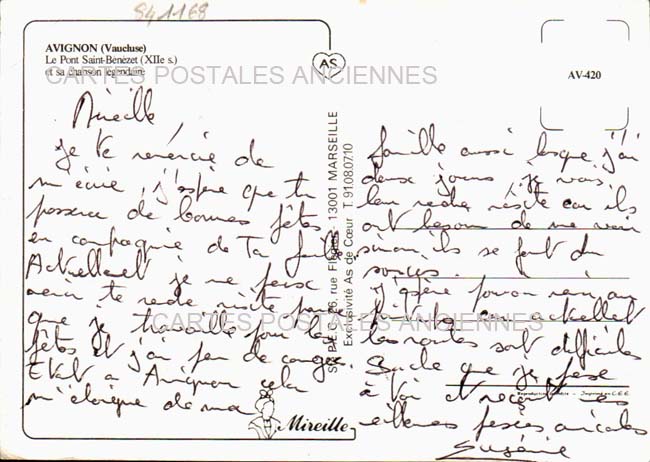 841168
AVIGNON (Vaucluse)
Le Pont Saint-Bénezet (XIIe s.)
et sa chanson légendaire
CARTES POSTALES ANCIENNES
AS
AV-420
Mireille,
Je te remercie de
m'écrire, j'espère que tu
passeras de bonnes fêtes
en compagnie de ta famille
Actuellement je ne pense
venir te rendre visite parce
que je travaille pour les
fêtes et j'ai peu de congés.
Etant à Avignon cela
m'éloigne de ma
Mireille
13001 MARSEILLE
Exclusivité As de Cœur T. 91.08.07.10
famille aussi lorsque j'ai
deux jours, je vais
leur rendre visite car ils
ont besoin de me voir
sinon ils se font du
soucis.
J'espère pouvoir venir au
actuellet
les routes sont difficiles
Sache que je pense
à toi et reçoit mes
meilleures pensées amicales
Eugénie
CARTES POSTALES ANCIENNES